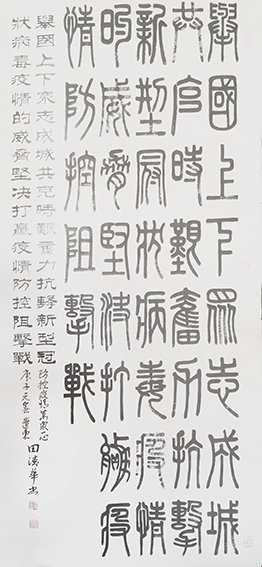 舉國上下眾志成城
共克時艱奮力抗擊
新型冠狀病毒疫情
的威脅堅決打贏疫
情防控阻擊戰
舉國上下眾志成城共克時艱奮力抗擊新型冠
狀病毒疫情的威脅堅決打贏疫情防控阻擊戰
防控疫情萬眾心
庚子元宵
田華書